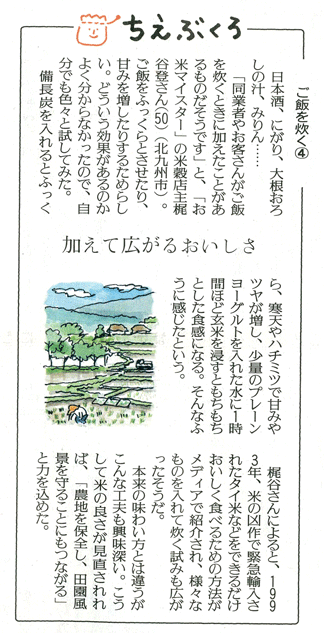 ちえぶくろ
ご飯を炊く④
日本酒、にがり、大根おろ
しの汁、みりん……
「同業者やお客さんがご飯
を炊くときに加えたことがあ
るものだそうです」と、「お
米マイスター」の米穀店主梶
谷登さん(50)(北九州市)。
ご飯をふっくらとさせたり、
甘みを増したりするためらし
い。どういう効果があるのか
よく分からなかったので、自
分でも色々と試してみた。
備長炭を入れるとふっく
加えて広がるおいしさ
ら、寒天やハチミツで甘みや
ツヤが増し、少量のプレーン
ヨーグルトを入れた水に1時
間ほど玄米を浸すともちもち
とした食感になる。そんなふ
うに感じたという。
梶谷さんによると、199
3年、米の凶作で緊急輸入さ
れたタイ米などをできるだけ
おいしく食べるための方法が
メディアで紹介され、様々な
ものを入れて炊く試みも広が
ったそうだ。
本来の味わい方とは違うが
こんな工夫も興味深い。こう
して米の良さが見直されれ
ば、「農地を保全し、田園風
景を守ることにもつながる」
と力を込めた。